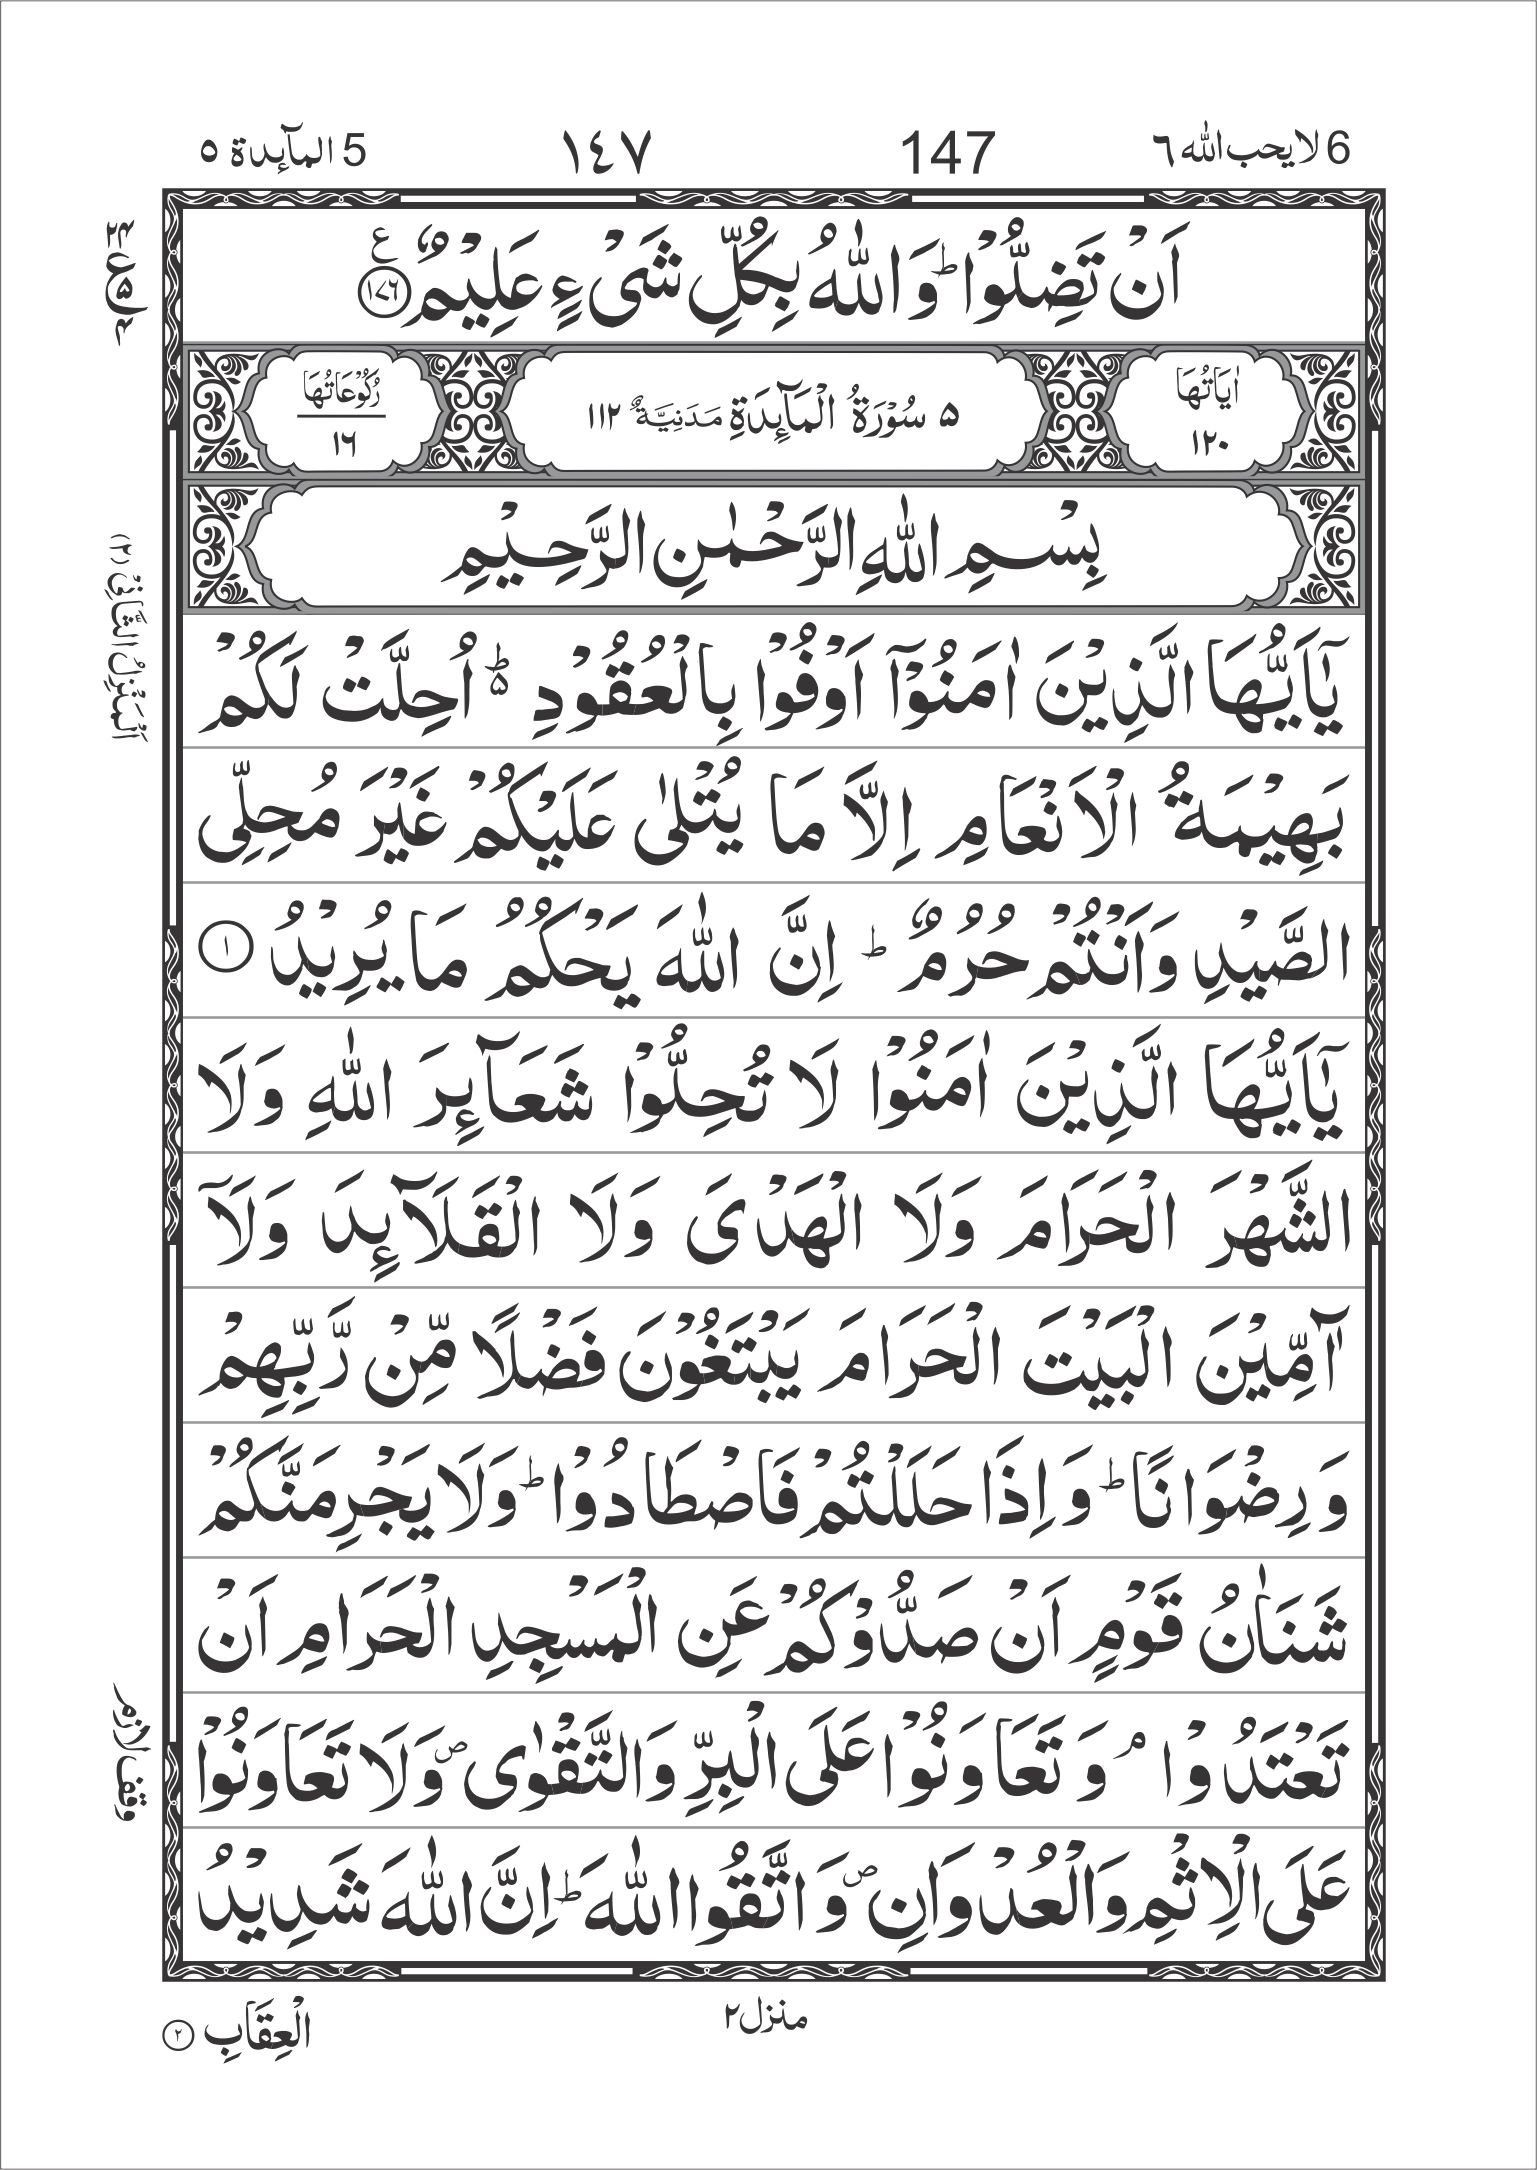 6 لا يحب الله ٦ 147 ١٤٧ 5 المآىِٕدة ٥
اَنْ تَضِلُّوْا ؕ وَاللّٰهُ بِكُلِّ شَیْءٍ عَلِیْمٌ ۠ ﴿۱۷۶﴾
اٰیَاتُهَا ۱۲۰
۵ سُوْرَةُ الْمَآىِٕدَةِ مَدَنِیَّةٌ ۱۱۲
رُكُوْعَاتُهَا ۱۶
بِسْمِ اللّٰهِ الرَّحْمٰنِ الرَّحِیْمِ
یٰۤاَیُّهَا الَّذِیْنَ اٰمَنُوْۤا اَوْفُوْا بِالْعُقُوْدِ ؕ۬ اُحِلَّتْ لَكُمْ
بَهِیْمَةُ الْاَنْعَامِ اِلَّا مَا یُتْلٰی عَلَیْكُمْ غَیْرَ مُحِلِّی
الصَّیْدِ وَاَنْتُمْ حُرُمٌ ؕ اِنَّ اللّٰهَ یَحْكُمُ مَا یُرِیْدُ ﴿۱﴾
یٰۤاَیُّهَا الَّذِیْنَ اٰمَنُوْا لَا تُحِلُّوْا شَعَآىِٕرَ اللّٰهِ وَلَا
الشَّهْرَ الْحَرَامَ وَلَا الْهَدْیَ وَلَا الْقَلَآىِٕدَ وَلَاۤ
آٰمِّیْنَ الْبَیْتَ الْحَرَامَ یَبْتَغُوْنَ فَضْلًا مِّنْ رَّبِّهِمْ
وَرِضْوَانًا ؕ وَاِذَا حَلَلْتُمْ فَاصْطَادُوْا ؕ وَلَا یَجْرِمَنَّكُمْ
شَنَاٰنُ قَوْمٍ اَنْ صَدُّوْكُمْ عَنِ الْمَسْجِدِ الْحَرَامِ اَنْ
تَعْتَدُوْا ۘ وَتَعَاوَنُوْا عَلَی الْبِرِّ وَالتَّقْوٰی ۪ وَلَا تَعَاوَنُوْا
عَلَی الْاِثْمِ وَالْعُدْوَانِ ۪ وَاتَّقُوا اللّٰهَ ؕ اِنَّ اللّٰهَ شَدِیْدُ
الْعِقَابِ ﴿۲﴾
منزل۲
اَلْمَنْزِلُ الثَّانِیْ (۲)
وقف لازم